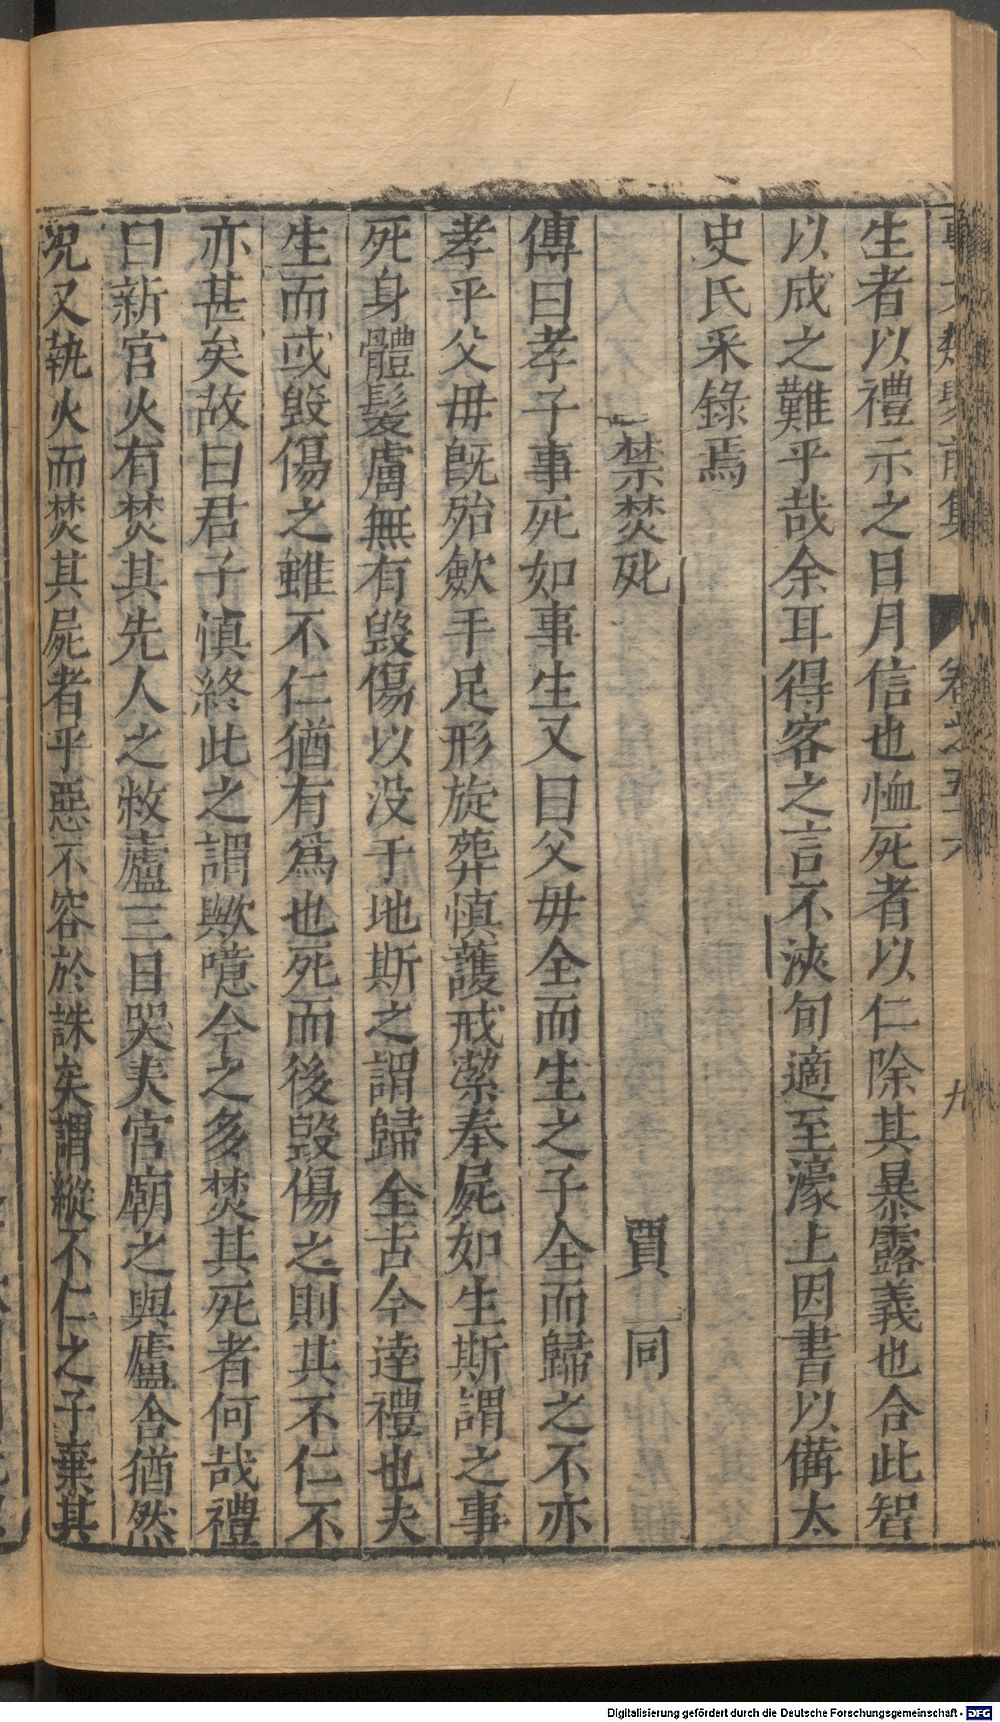 生者以禮示之日月信也恤死者以仁除其暴露義也合此智
以成之難乎哉余耳得客之言不浹旬適至濠上因書以備太
史氏采錄焉
禁焚死 賈同
傳曰孝子事死如事生又曰父母全而生之子全而歸之不亦
孝乎父毋旣殆歛手足形旋葬慎護戒潔奉屍如生斯謂之事
死身體髮膚無有毀傷以没于地斯之謂歸全古今逹禮也夫
生而或毀傷之雖不仁猶有爲也死而後毀傷之則其不仁不
亦甚矣故曰君子慎終此之謂歟噫今之多焚其死者何哉禮
曰新宫火有焚其先人之敝廬三日哭夫宫廟之與廬舎猶然
況又執火而焚其屍者乎惡不容於誅矣謂縱不仁之子棄其
卷之五十六
九
Digitalisierung gefördert durch die Deutsche Forschungsgemeinschaft - DFG